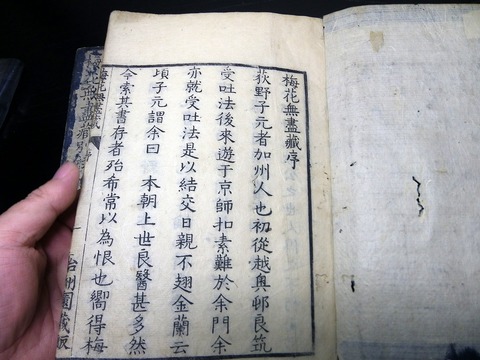 梅花無盡藏序
荻野子元者加州人也初從越奧邨良筑
受吐法後來遊于京師扣素難於余門余
亦就受吐法是以結交日親不翅金蘭云
頃子元謂余曰　本朝上世良醫甚多然
今索其書存者殆希常以為恨也嚮得梅
梅花無盡藏
吾州園藏板